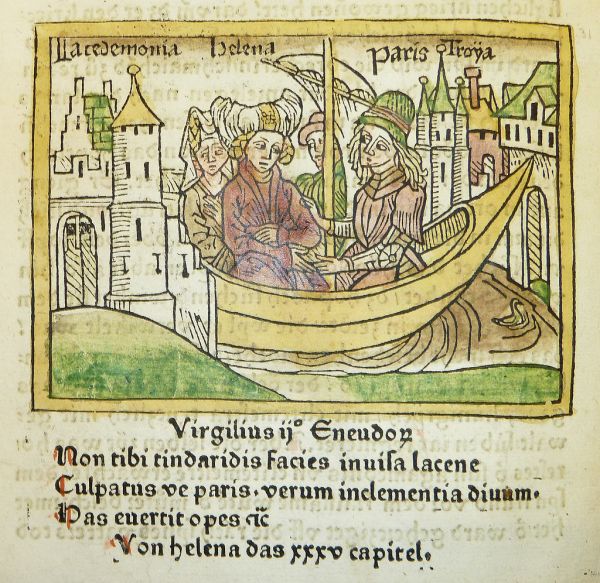 Lacedemonia helena Paris Troÿa
Virgilius ijº Eneudoꝝ
Non tibi tindaridis facies inuisa lacene
Culpatus ve paris. verum inclementia diuum.
Has euertit opes ꝛc̄
Von helena das xxxv capitel.